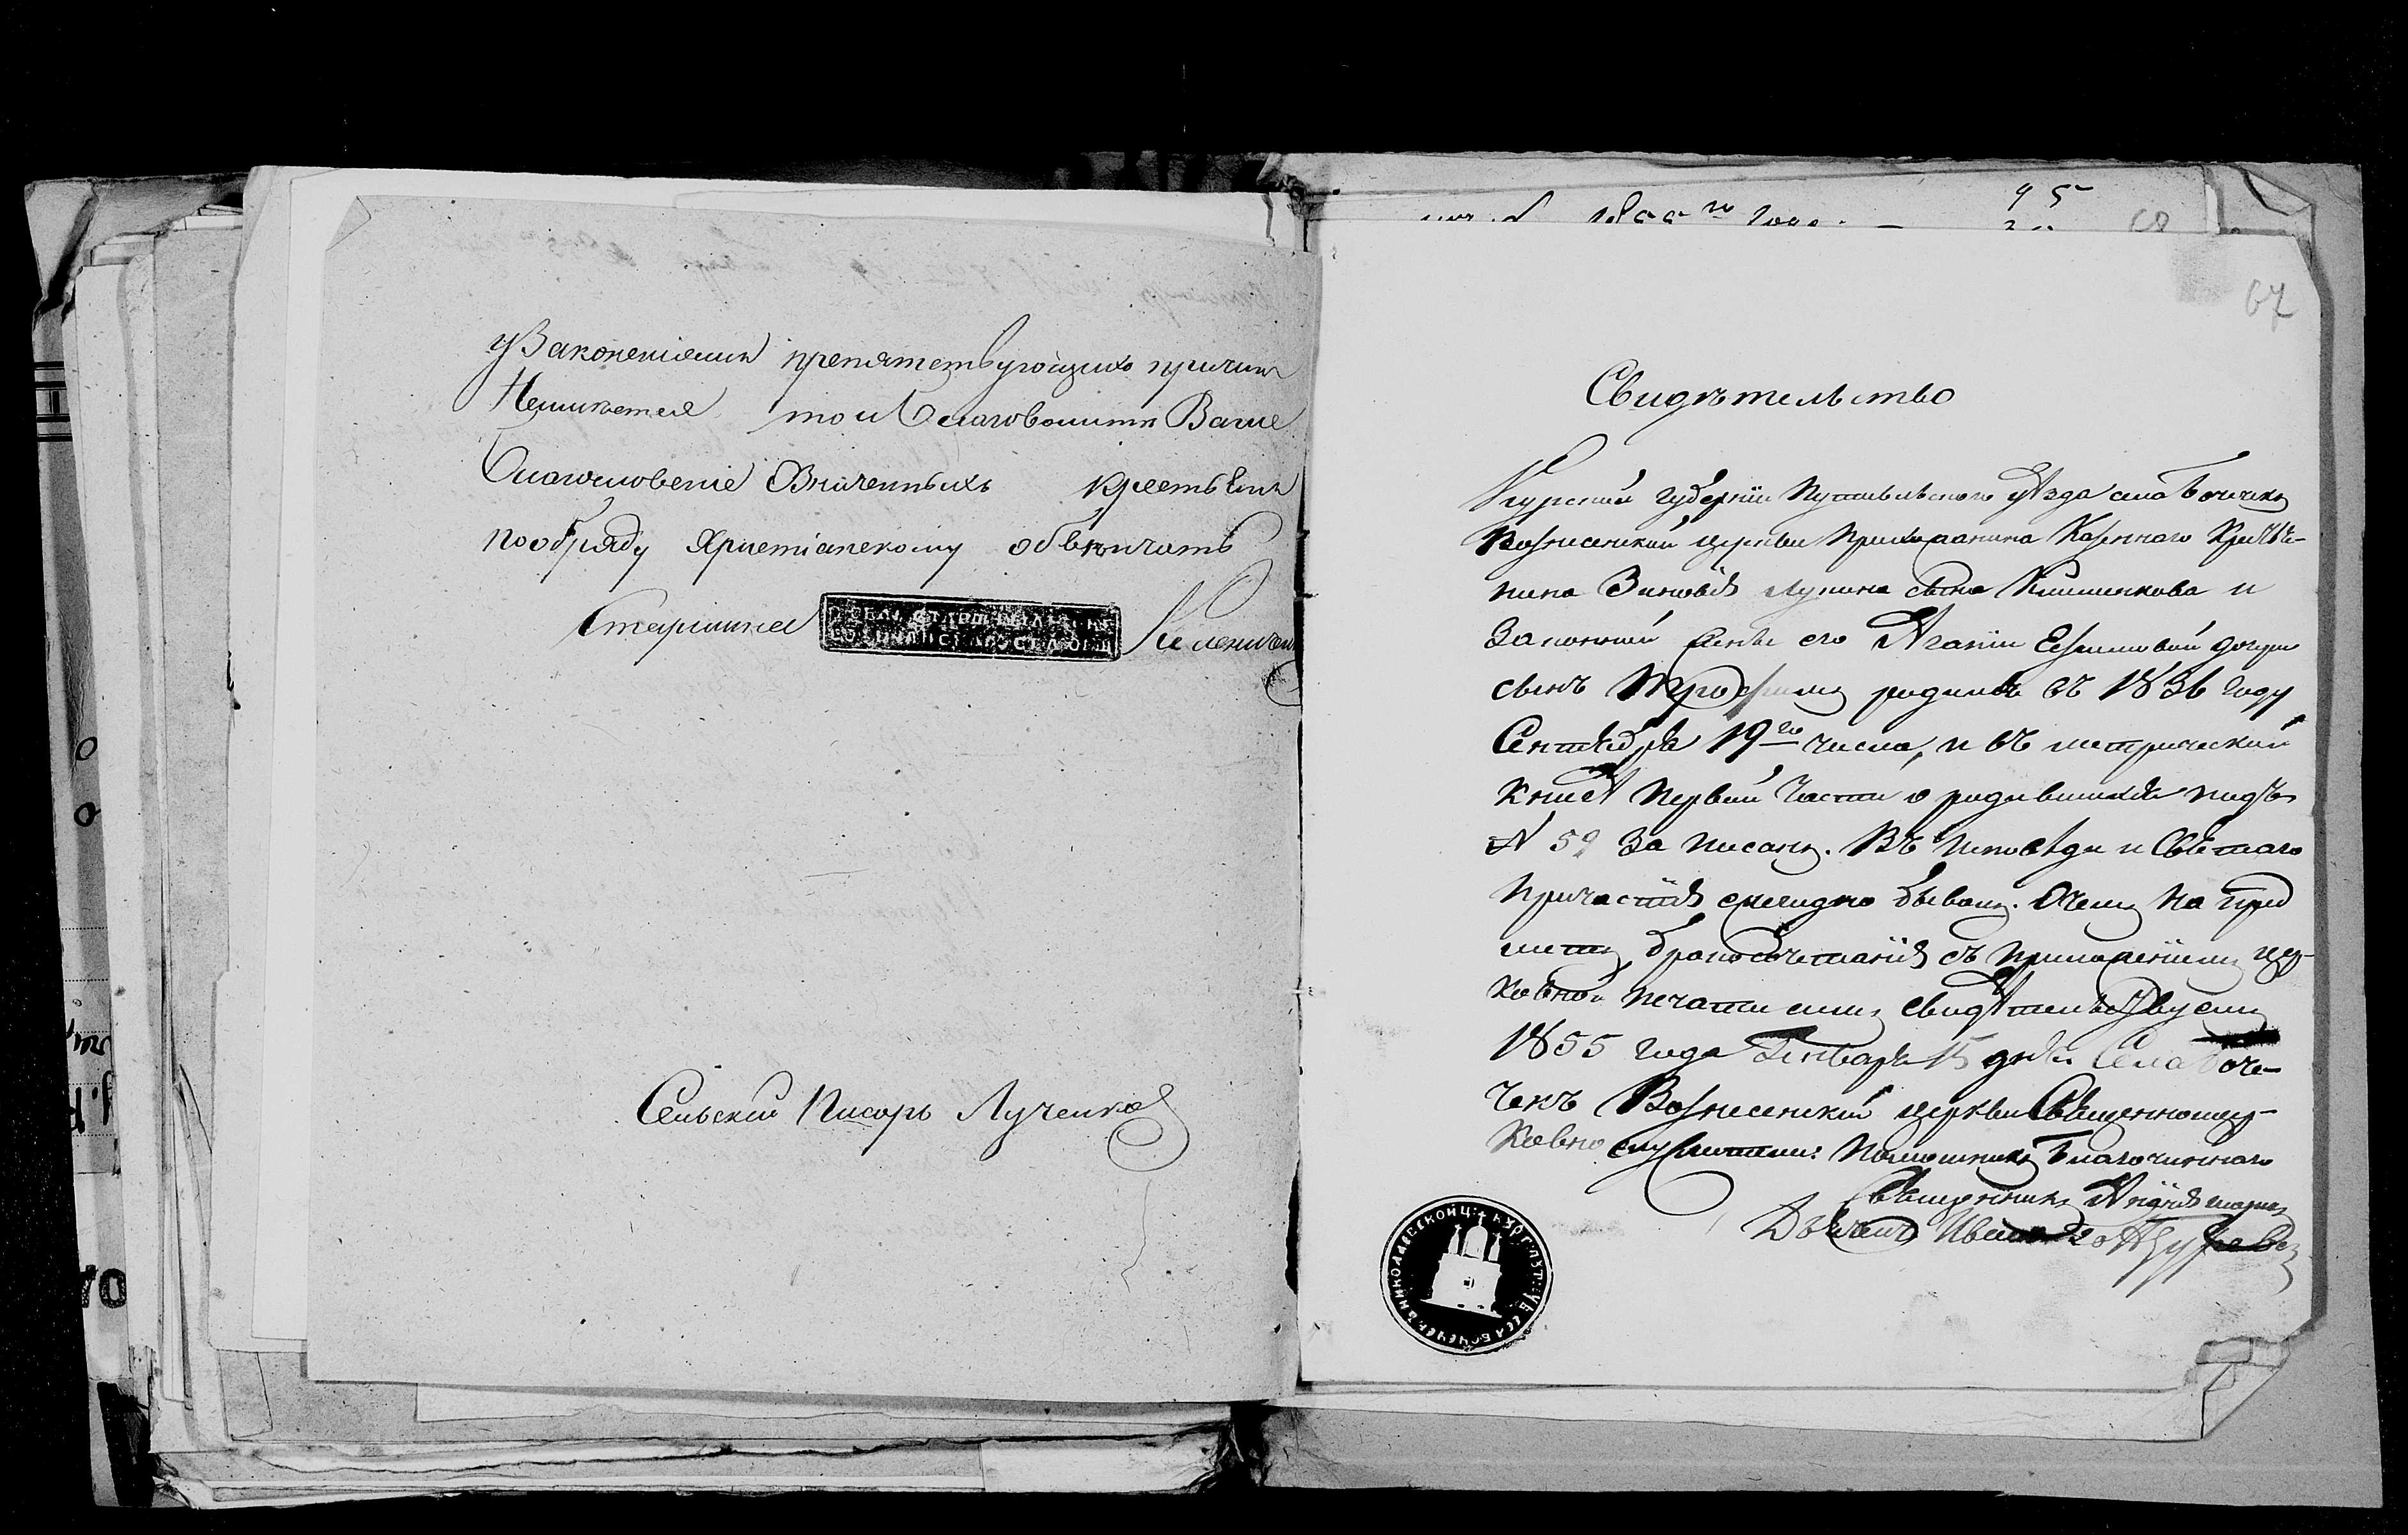 узаконениями препятствующихъ причин
Неимѣется то и благоволити Ваше
Благословение Означенныхъ крестьян
по обряду Христіанскому обвѣнчать
Старшина
Сельский Писарь Лученковъ
95
1855 го года
67
Свидѣтельство
Курской губерніи Путивльского уѣзда села Бочечкъ
Вознесенской церкви Прихожанина Казеннаго Крестья-
нина Зиновія Лукина сына Клименкова и
законной жены его Агапіи Ефимовой дочери
сынъ Трофимъ родился въ 1836 году
Сентября 19го числа, и въ метрической
книгѣ первой части о родившихся подъ
№ 59 записанъ. Въ исповѣди и Святаго
Причастія ежегодно бывалъ. О чемъ на пред
метъ бракосочетанія съ приложеніемъ цер-
ковной печати симъ свидѣтельствуемъ
1855 года Января 15 дня. Села Боче-
чекъ Вознесенской церкви Священноцер-
ковнослужители: Помощникъ Благочиннаго
Священникъ
Дьячекъ Иван